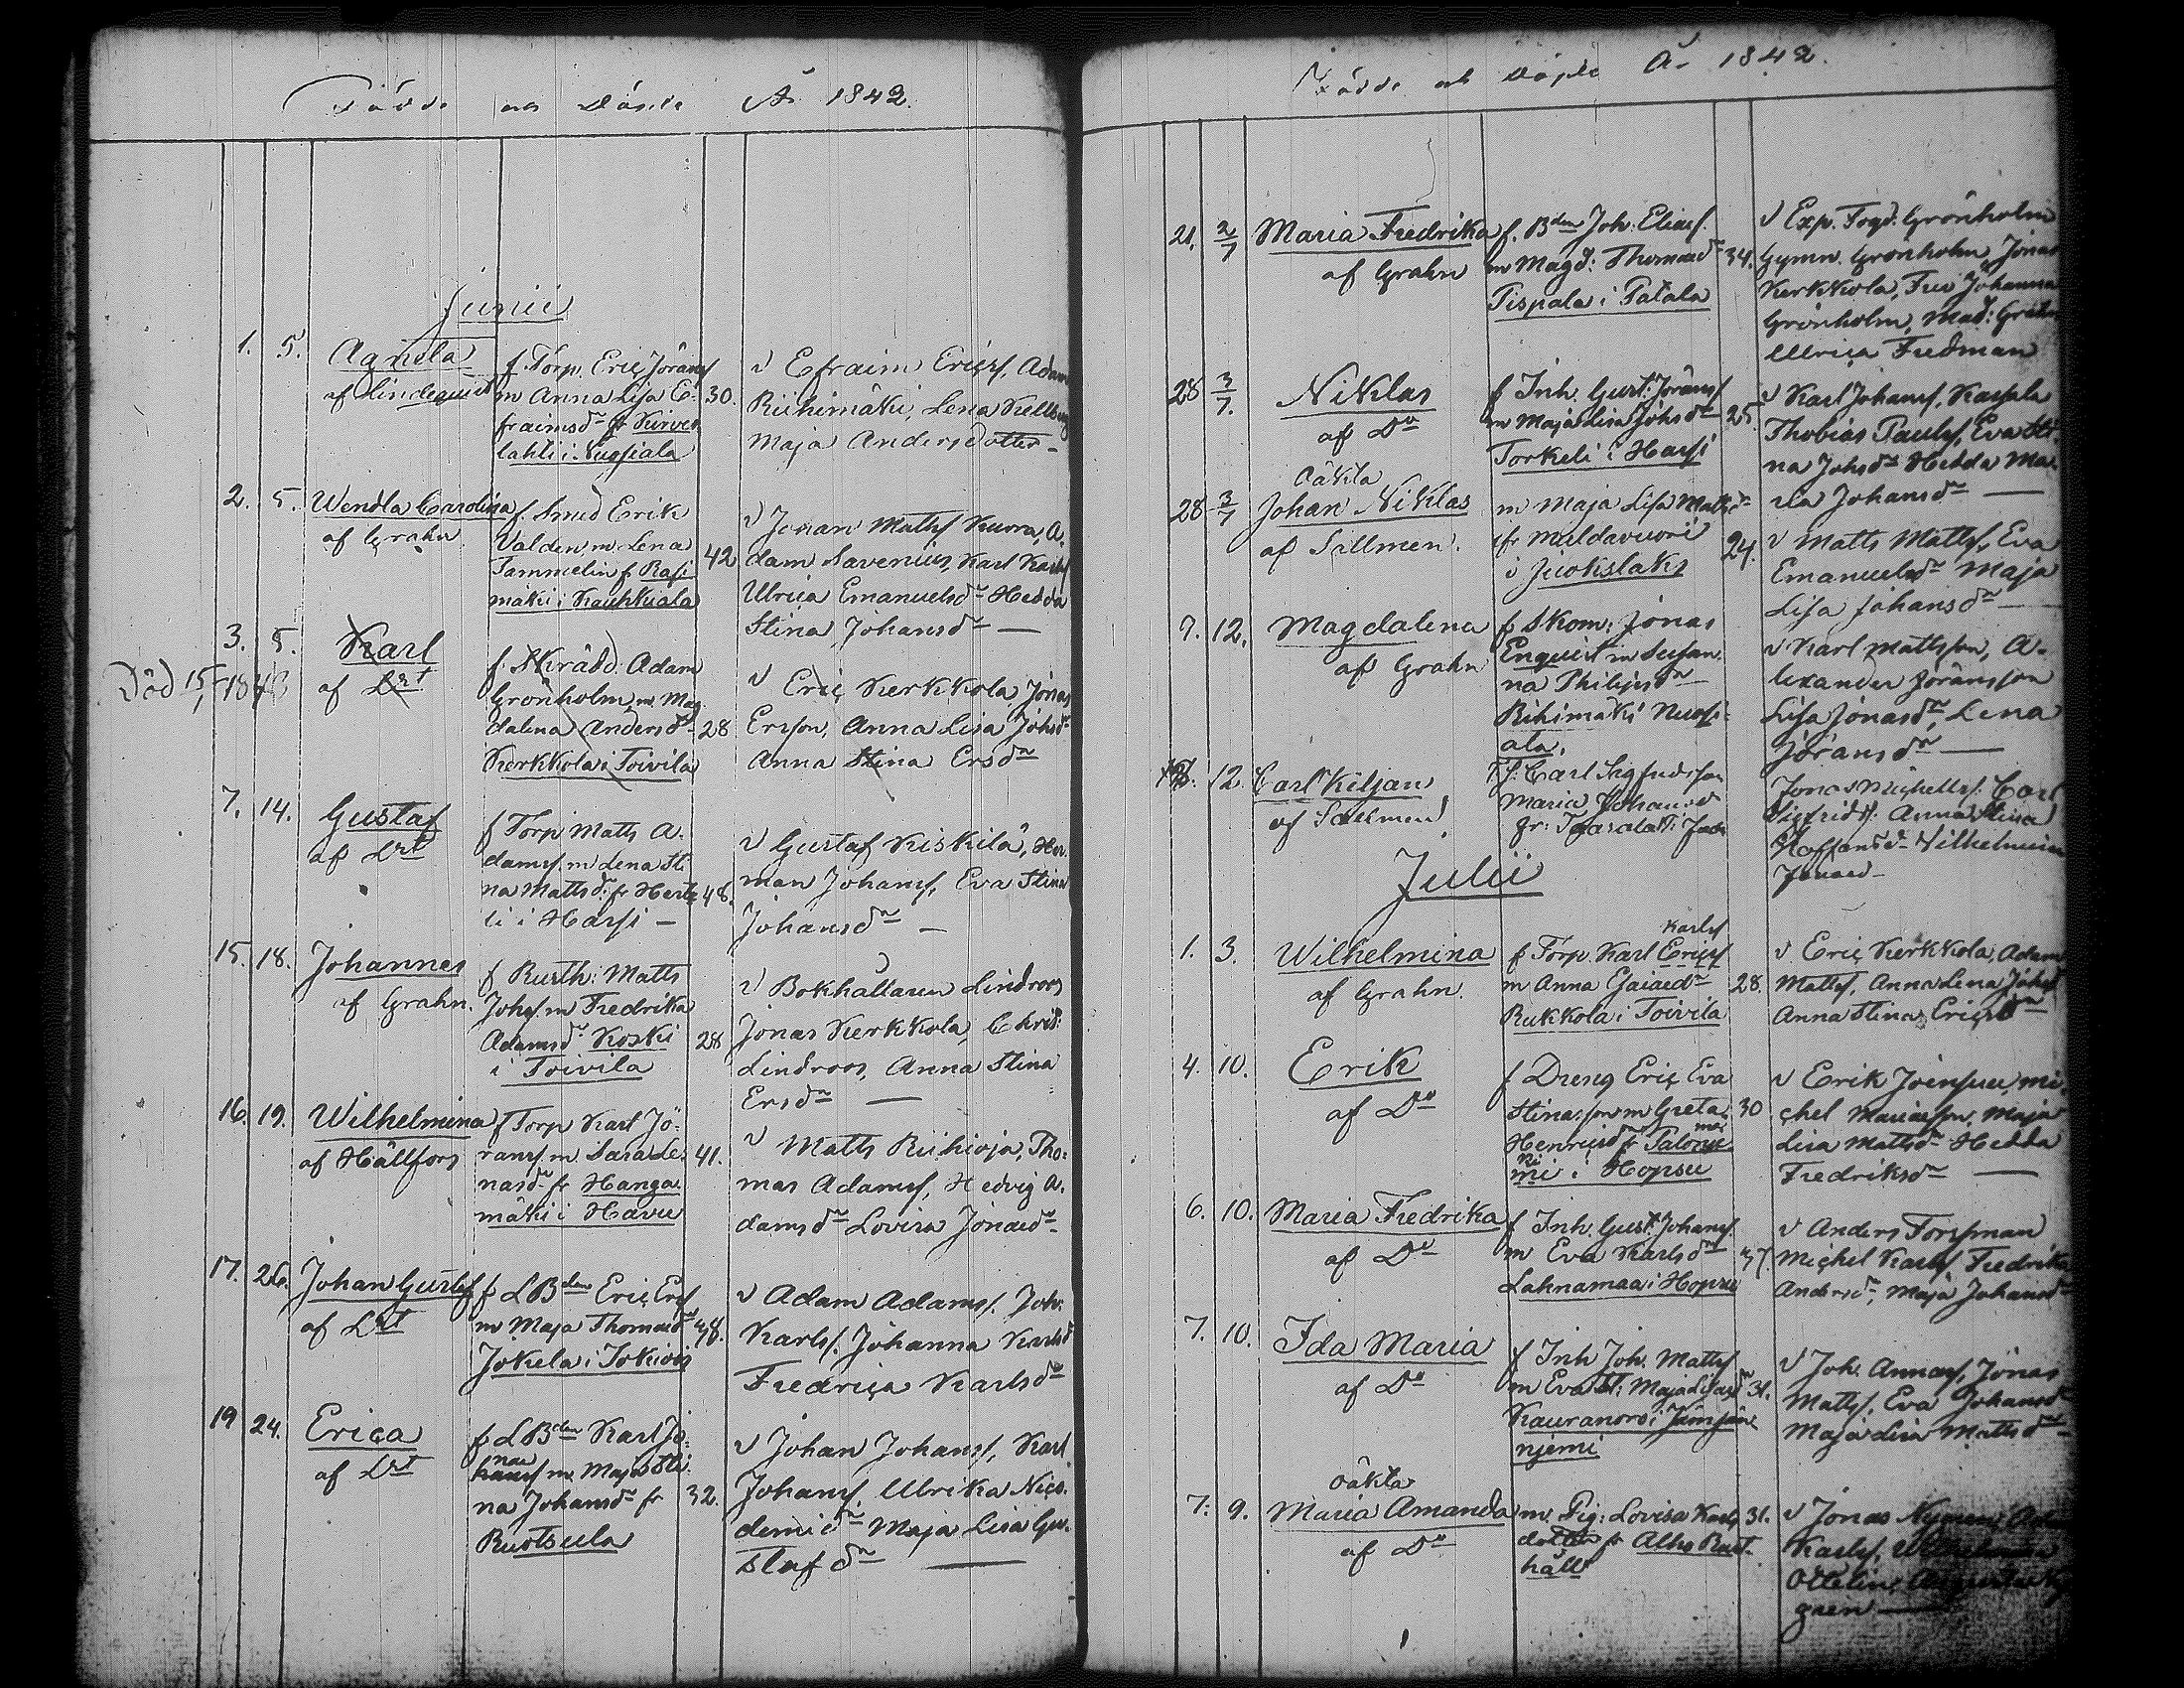 Födde och Döpte År 1842.
Junii
1. 5. Agneta
af Lindequist
f Torp. Eriç Jöranss
m Anna Lisa E-
fraimsdr fr Kirves
lahti i Nussiala
30.
v Efraim Ericss, Adam
Riihimäki, Lena Kellberg
Maja Andersdotter
2. 5. Wendla Carolina
af Grahn
f. Smed Erik
Valden, m Lena
Tammelin f. Rasi
mäki i Kauhkiala
42
v Johan Mattss Kurra, A.
dam Savenius, Karl Karlss
Ulrica Emanuelsdr Hedda
Stina Johansdr —
3. 5. Karl
af Drt
Död 15/ 1843
f. Skrädd. Adam
Grönholm, m. Mag
dalena Andersdr
Kerkkola i Toivila
28
v Eriç Kerkkola, Jonas
Ersson, Anna Lisa Johsdr
Anna Stina Ersdr
7. 14. Gustaf
af Drt
f Torp Matts A.
damss m Lena Sti
na Mattsdr. fr Hertt
li i Harsi —
48.
v Gustaf Kiskilä, Her
man Johanss, Eva Stina
Johansdr —
15. 18. Johannes
af Grahn.
f Rusth: Matts
Johss. m Fredrika
Adamsdr Koski
i Toivila
28
v Bokhållaren Lindroos
Jonas Kerkkola, Chris:
Lindroos, Anna Stina
Ersdr —
16. 19. Wilhelmina
af Hällfors
f Torp Karl Jö-
ranss. m. Sara Le-
nasdr fr Hanga
mäki i Havu
41.
v Matts Riihioja, Tho-
mas Adamss, Hedvig A.
damsdr Lovisa Jonaedr
17. 26. Johan Gustaf
af Drt
f LBden Eriç Erss
m Maja Thomaedr
Jokela i Jokioi
48.
v Adam Adamss. Joh:
Karlss. Johanna Karlsd
Fredriça Karlsdr
19 24. Erica
af Drt
f LBden Karl Jo-
nae
hanss m. Maja Sti-
na Johansdr fr
Ruotsula
32.
v Johan Johanss, Karl
Johanss, Ulrika Niço-
demidr Maja Lisa Gu-
stafdr —
Födde och Döpte År 1842.
21. 2/7 Maria Fredrika
af Grahn
f. Bden Joh. Eliass.
m Magd: Thomaedr
Pispala i Patala
34.
v Exp. Fogd. Grönholm
Gymn. Grönholm, Jonas
Kerkkola, Fru Johanna
Grönholm, Mad: Greta
Ulrica Fredman
28 3/7. Niklas
af Do
f Inh. Gust: Joranss
m Maja Lisa Johsdr
Torkeli i Harsi
25.
v Karl Johanss, Kaspala
Thobias Paulss, Eva Sti
na Johsdr Hedda Ma-
ria Johansdr —
Oäkta
28 3/7 Johan Niklas
af Sällmen.
m Maja Lisa Mattsdr
ifr Muldavuori
i Juokslaks
24.
v Matts Mattss, Eva
Emanuelsdr Maja
Lisa Johansdr —
9. 12. Magdalena
af Grahn
f Skom: Jonas
Enquist m Susan-
na Philipsdr
Riihimäki Nussi-
ala.
v Karl Mattsson, A-
lexander Jöransson
Lisa Jonasdr, Lena
Jöransdr —
12. Carl Kiljan
af Sällmen
f: Carl Sigfridsson
Maria Johansd
Jonas Michelss. Carl
Sigfridss. Anna Stina
Wilhelmina
Jonaed-
Julii
1. 3. Wilhelmina
af Grahn.
Karlss
f Torp Karl Ericss
m Anna Esaiaedr
Rukkola i Toivila
28.
v Eriç Kerkkola, Adam
Mattss, Anna Lena Johsd
Anna Stina Ericsdr
4. 10. Erik
af Do
f Dreng Eriç Eva
Stinasson m Greta
Henricsdr fr Palonie
mi i Hopsu
30
v Erik Joensuu, Mi-
chel Mariasson, Maja
Lisa Mattsdr Hedda
Fredriksdr —
6. 10. Maria Fredrika
af Do
f Inh. Gust. Johanss.
m Eva Karlsdr
Lahnamaa i Hopsu
37.
v Anders Forssman
Michel Karlss Fredrika
Andersdr, Maja Johansdr
7. 10. Ida Maria
af Do
f Inh Joh. Mattss
m Eva St: Maja Lisasdr
Kauranoro i Jämsän
njemi
31.
v Joh. Annass, Jonas
Mattss, Eva Johansdr
Maja Lisa Mattsdr
Oäkta
7. 9. Maria Amanda
af Do
m. Pig: Lovisa Karls
dotter fr Alho Rust-
håll
31.
v Jonas Nyman, Adam
Karlss, Wilhelmina
Ottelin, Augusta
gren —